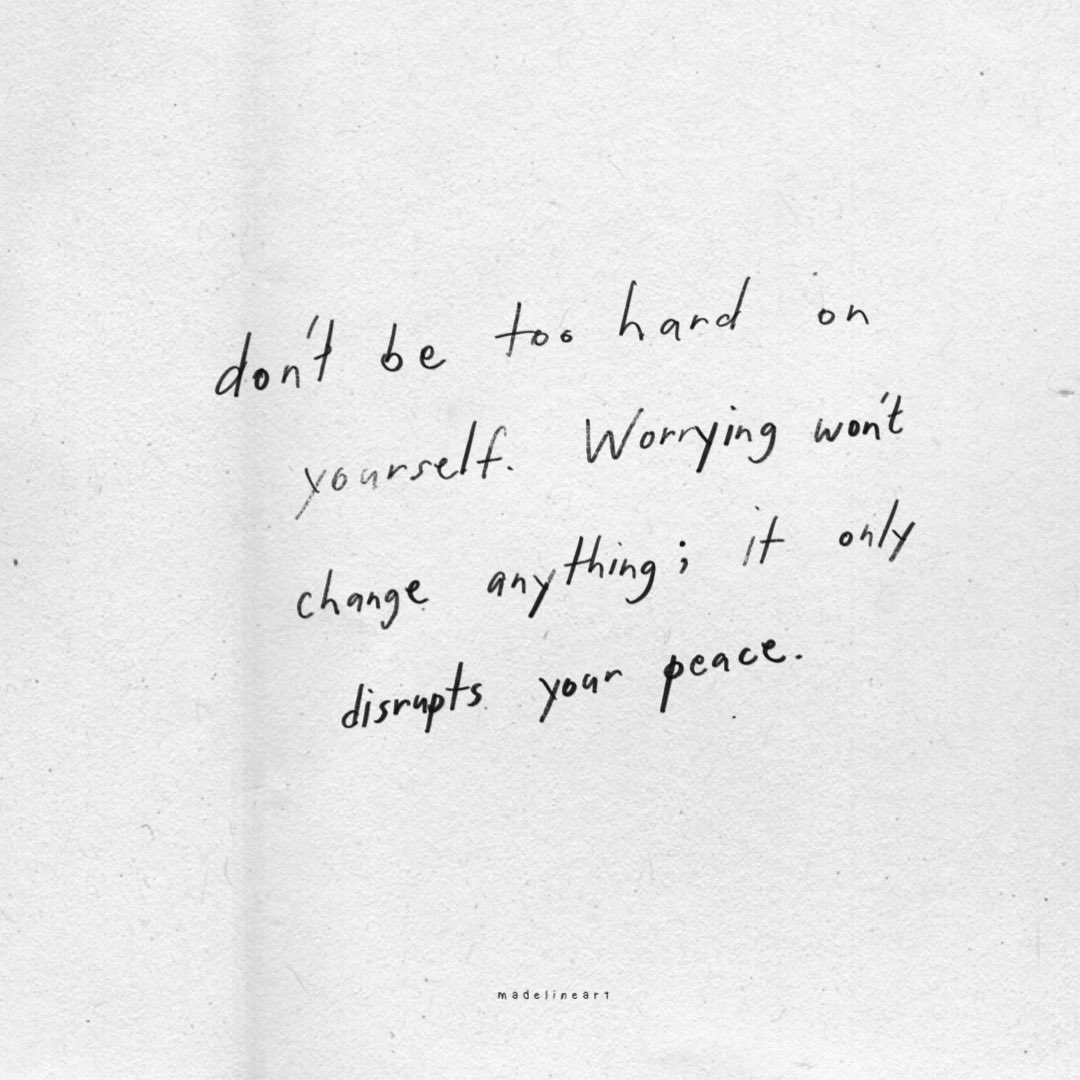 don't be too hard on
yourself. Worrying won't
change anything; it only
disrupts your peace.
madelineart